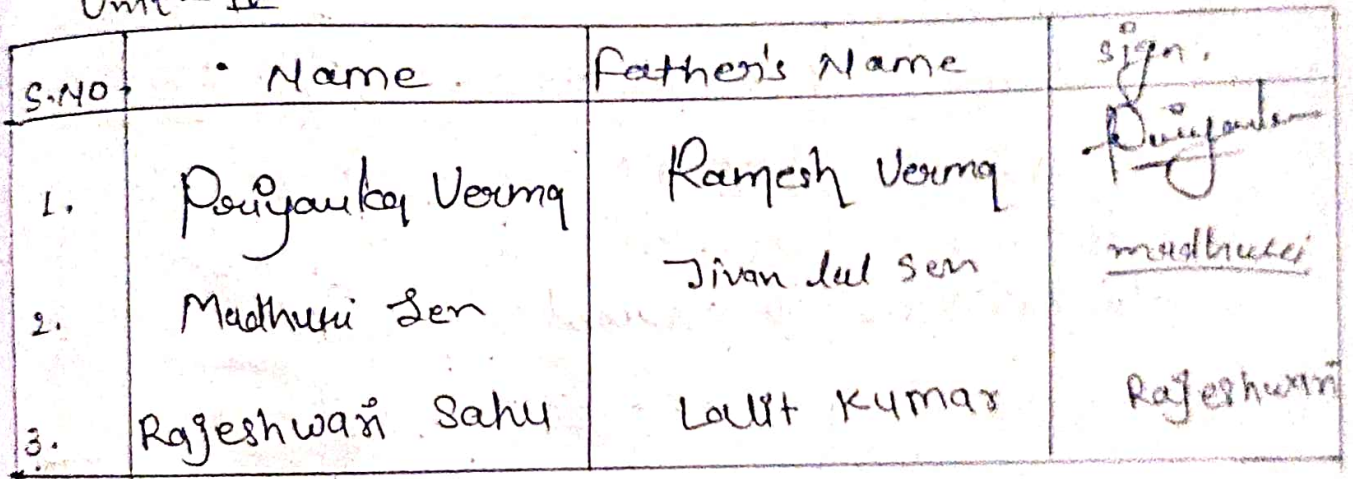 Unit - IV
S.NO. Name. Father's Name sign.
1. Priyanka Verma Ramesh Verma Priyanka
2. Madhuri Sen Jivan lal Sen madhuri
3. Rajeshwari Sahu Lalit Kumar Rajeshwari